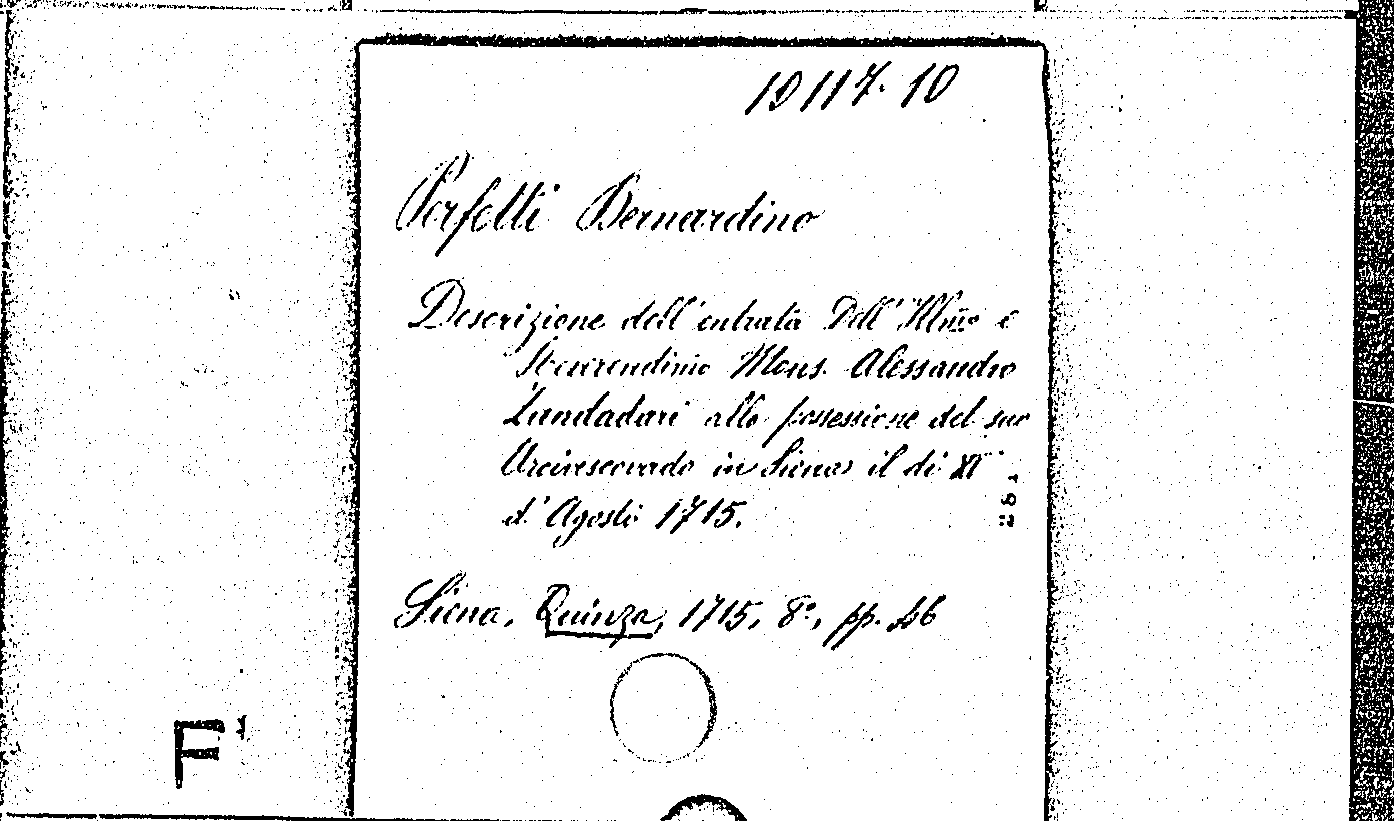 19117.10
Perfetti Bernardino
Descrizione dell'entrata Dell' Illm̃o e
Reverendmo Mons. Alessandro
Zondadari alla possessione del suo
Arcivescovado in Siena il di XI
d'Agosto 1715.
Siena, Quinza, 1715, 8°, pp. 46
F 1